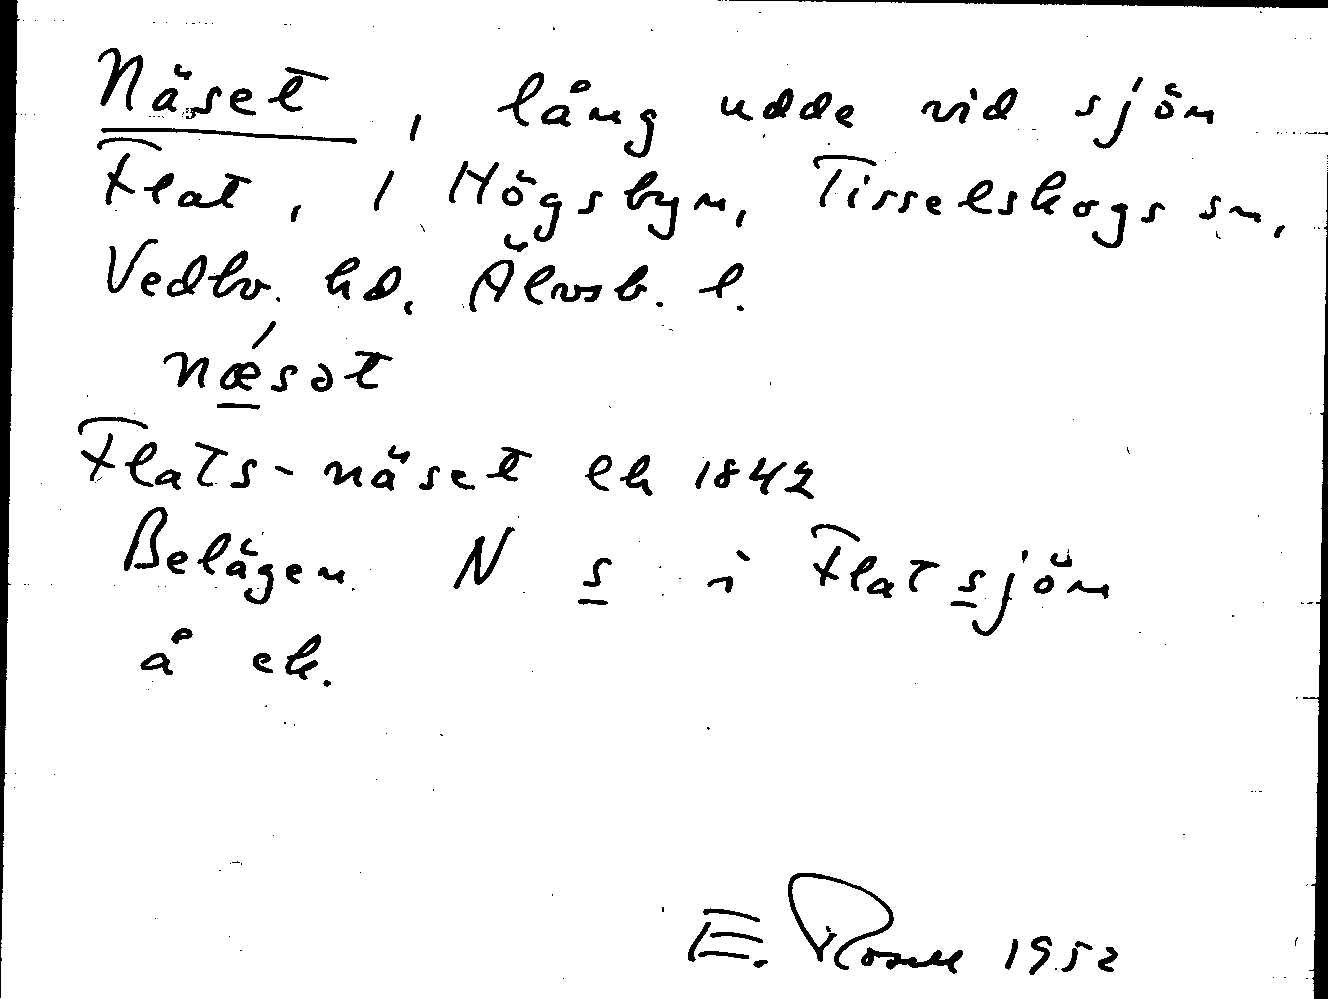 Näset, lång udde vid sjön
Flat, i Högsbyn, Tisselskogs sn,
Vedbo. hd. Älvsb. l.
næ´sət
Flats-näset ek 1842
Belägen N s i Flatsjön
å ek.
E. Rosell 1952